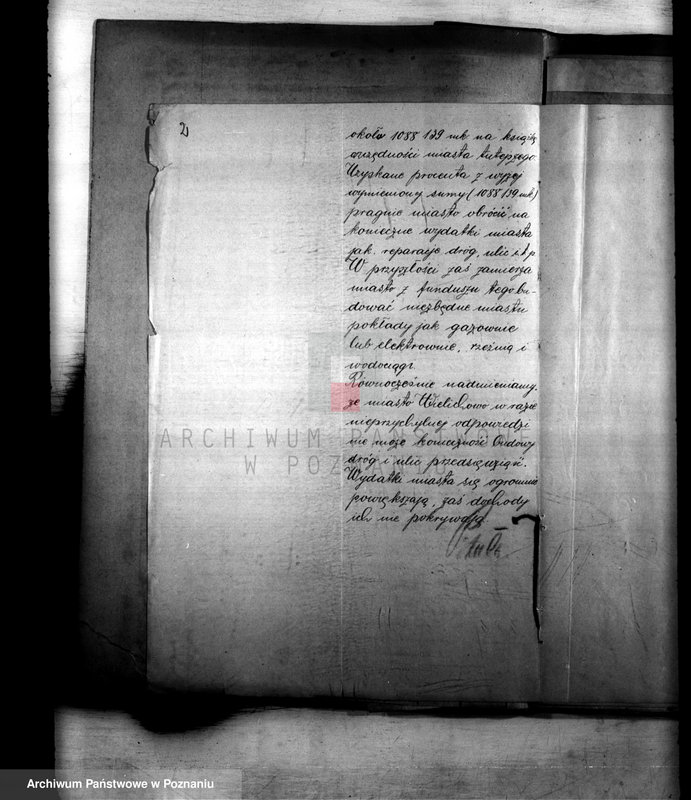 2
około 1088 139 mk na książkę
oszczędności miasta tutejszego
Uzyskane procenta z wyżej
wymienionej sumy (1088 139 mk)
pragnie miasto obrócić na
konieczne wydatki miasta
jak. reparacje dróg, ulic i t. p.
W przyszłości zaś zamierza
miasto z funduszu tego bu-
dować niezbędne miastu
pokłady jak gazownie
lub elektrownie, rzeźnią i
wodociągi.
Równocześnie nadmieniamy,
że miasto Wielichowo w razie
nieprzychylnej odpowiedzi
nie może konieczność budowy
dróg i ulic przedsięwziąść.
Wydatki miasta się ogromnie
powiększają, zaś dochody
ich nie pokrywają.
ARCHIWUM PAŃSTWOWE
W POZNANIU
Archiwum Państwowe w Poznaniu